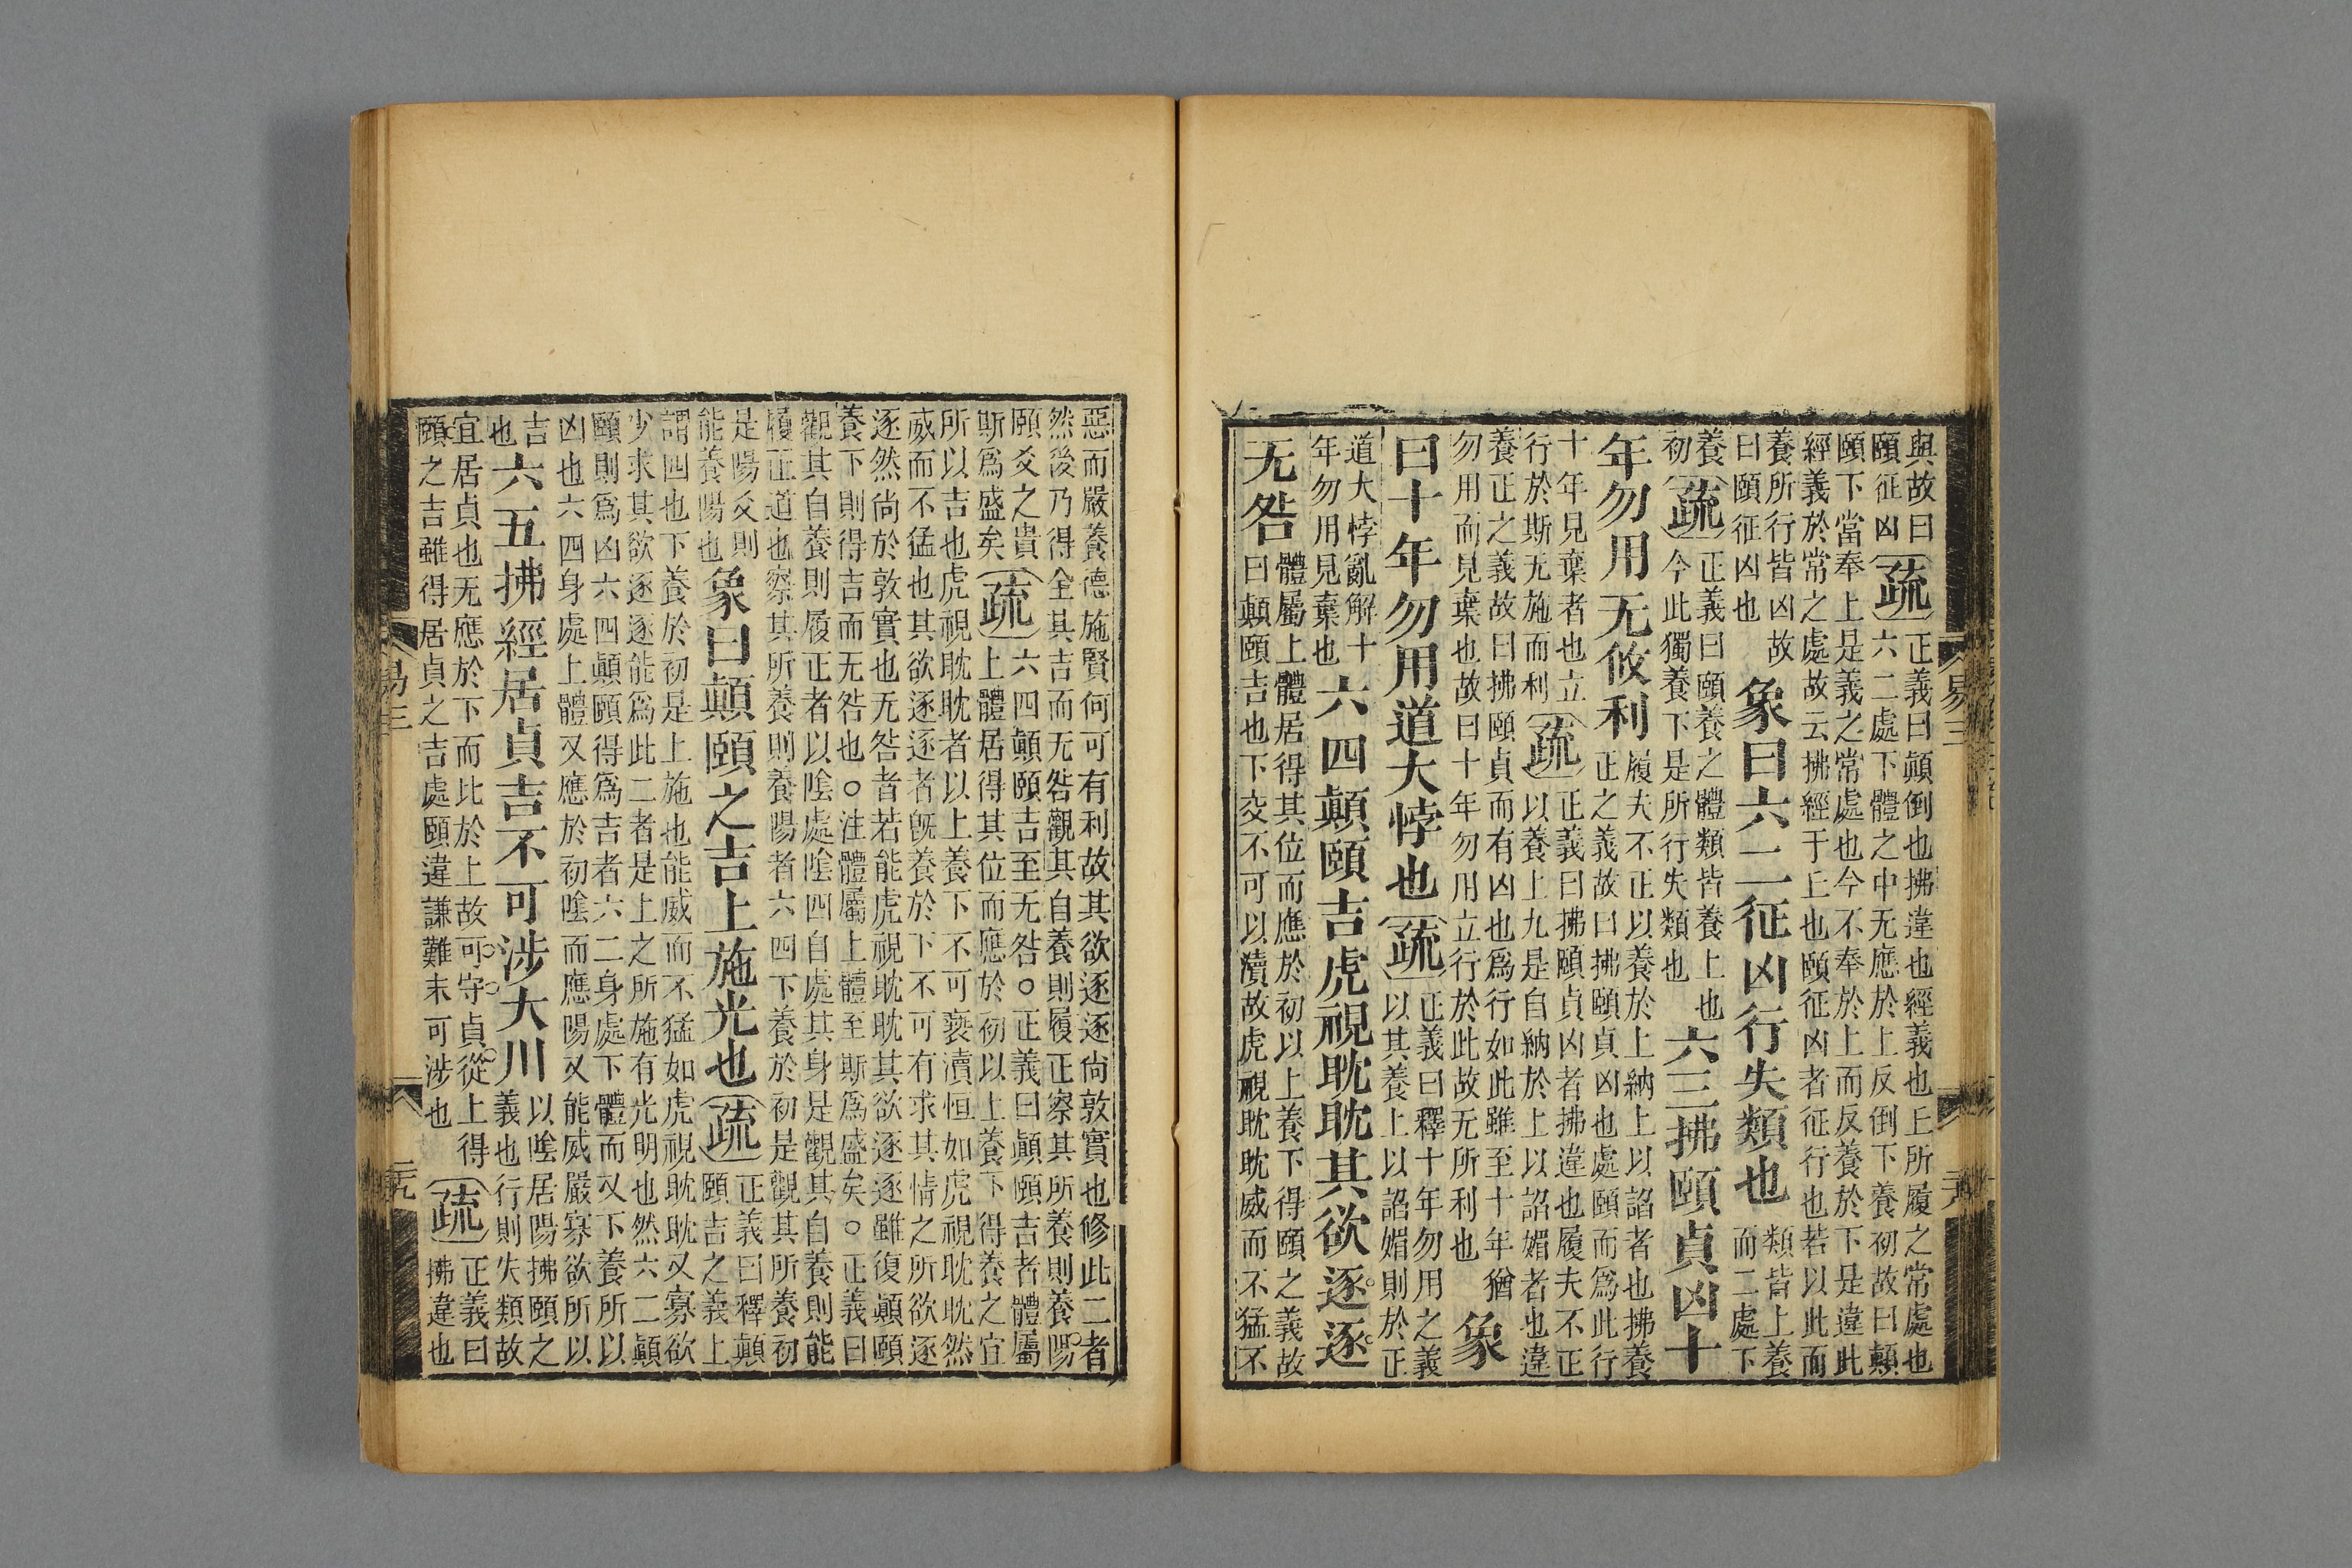 與故曰
頤征凶
疏
正義曰顚倒也拂違也經義也丘所履之常處也
六二處下體之中无應於上反倒下養初故曰顚
頤下當奉上是義之常處也今不奉於上而反養於下是違此
經義於常之處故云拂經于丘也頤征凶者征行也若以此而
養所行皆凶故
曰頤征凶也
象曰六二征凶行失類也
類皆上養
而二處下
養
初
疏
正義曰頤養之體類皆養上也
今此獨養下是所行失類也
六三拂頤貞凶十
年勿用无攸利
履夫不正以養於上納上以諂者也拂養
正之義故曰拂頤貞凶也處頤而爲此行
十年見棄者也立
行於斯无施而利
疏
正義曰拂頤貞凶者拂違也履夫不正
以養上九是自納於上以諂媚者也違
養正之義故曰拂頤貞而有凶也爲行如此雖至十年猶
勿用而見棄也故曰十年勿用立行於此故无所利也
象
曰十年勿用道大悖也
疏
正義曰釋十年勿用之義
以其養上以諂媚則於正
道大悖亂解十
年勿用見棄也
六四顚頤吉虎視耽耽其欲逐逐
无咎
體屬上體居得其位而應於初以上養下得頤之義故
曰顚頤吉也下交不可以瀆故虎視耽耽威而不猛不
惡而嚴養德施賢何可有利故其欲逐逐尚敦實也修此二者
然後乃得全其吉而无咎觀其自養則履正察其所養則養陽
頤爻之貴
斯爲盛矣
疏
六四顚頤吉至无咎○正義曰顚頤吉者體屬
上體居得其位而應於初以上養下得養之宜
所以吉也虎視耽耽者以上養下不可褻瀆恒如虎視耽耽然
威而不猛也其欲逐逐者旣養於下不可有求其情之所欲逐
逐然尚於敦實也无咎者若能虎視耽耽其欲逐逐雖復顚頤
養下則得吉而无咎也○注體屬上體至斯爲盛矣○正義曰
觀其自養則履正者以陰處陰四自處其身是觀其自養則能
履正道也察其所養則養陽者六四下養於初是觀其所養初
是陽爻則
能養陽也
象曰顚頤之吉上施光也
疏
正義曰釋顚
頤吉之義上
謂四也下養於初是上施也能威而不猛如虎視耽耽又寡欲
少求其欲逐逐能爲此二者是上之所施有光明也然六二顚
頤則爲凶六四顚頤得爲吉者六二身處下體而又下養所以
凶也六四身處上體又應於初陰而應陽又能威嚴寡欲所以
吉
也
六五拂經居貞吉不可涉大川
以陰居陽拂頤之
義也行則失類故
宜居貞也无應於下而比於上故可守貞從上得
頤之吉雖得居貞之吉處頤違謙難未可涉也
疏
正義曰
拂違也
易三
六
易三
二九